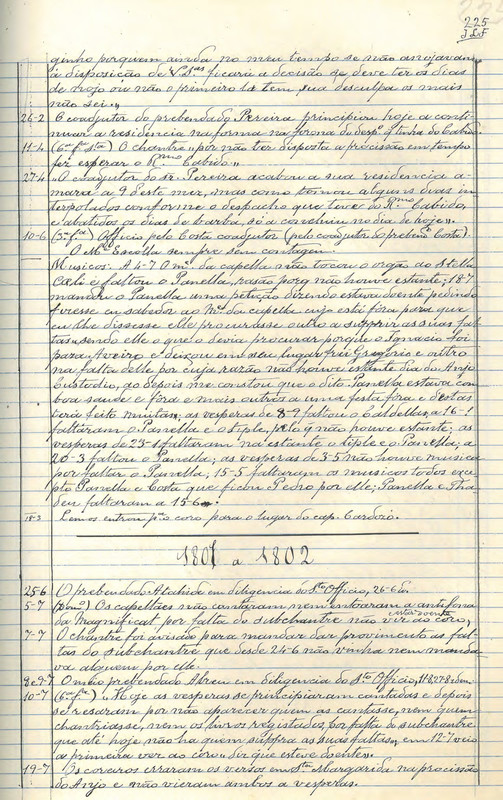 225
J.L.F
ginho porquem ainda no meu tempo se não anojavam
à disposição de V. S.as ficará a decisão de deve ter os dias
de nojo ou não o primeiro la tem sua desculpa os mais
não sei"
26-2 O coadjutor do prebendado Pereira principiou hoje a conti-
nuar a residencia na forma na forma do desp.º q tinha do Cabido.
11-4 (6ª fª stª) O chantre "por não ter disposta a procissão em tempo
fez esperar o Rmo Cabido"
27-4 "O coadjutor do sr. Pereira acabou a sua residencia a-
mara a 9 deste mez, mas como tomou alguns dias in-
terpolados conforme o despacho que teve do Rmo Cabido,
e abatidos os dias de barba, só a concluiu no dia de hoje".
10-6 (3ª fª) Officia pelo Costa coadjutor (pelo coadjutor do preben.º Costa).
O Me Escolla sempre sem contagem.
Musicos: A 4-7 O m.e da capella não tocou o orgão ao Stella
Cæli e faltou o Panella, rasão porq não houve estante; 18-7
mandou o Panella uma petição dizendo estava doente pedindo
fizesse eu sabedor ao Me da capella cujo está fora para que
eu lhe dissesse elle procurasse outro a supprir as suas fal-
tas, sendo elle o que o devia procurar porque o Ignacio foi
para Aveiro e deixou em seu lugar frei Gregorio e outro
na falta delle por cuja razão não houve estante dia do Anjo
Custodio, ao depois me constou que o dito Panella estava com
boa saude e fora e mais outros a uma festa fora e destas
terá feito muitas; as vesperas de 8-9 faltou o Caldellas; a 16-1
faltaram o Panella e o tiple, pelo q não houve estante; as
vesperas de 25-1 faltaram na estante o tiple e o Panella; a
20-3 faltou o Panella; as vesperas de 3-5 não houve musica
por faltar o Panella; 15-5 faltaram os musicos todos exce-
pto Panella e Costa que ficou Pedro por elle; Panella e Tha-
deu faltaram a 15-6.
18-3 Lemos entrou pª o coro para o lugar do cap. Cardozo.
1801 a 1802
25-6 O prebendado Atahide em diligencia do Sto Officio, 26-6 id.
5-7 (Domº) Os capellães não cantaram nem entoaram a antifona
da Magnificat por falta do subchantre não vir ao coro, está doente
7-7 O chantre foi avisado para mandar dar provimento as fal-
tas do subchantre que desde 24-6 não vinha nem manda-
va alguem por elle.
8 e 9-7 O meio prebendado Abreu em diligencia do Sto Officio, 11-8, 27-8 idem.
10-7 (6ª fª) "Hoje as vesperas se principiaram cantadas e depois
se resaram por não aparecer quem as cantasse, nem quem
chantriasse, nem os livros registados, por falta do subchantre
que até hoje não ha quem suppra as suas faltas, em 12-7 veio
a primeira vez ao coro e diz que esteve doente".
19-7 Os coreros erraram os versos em Sta Margarida na procissão
do Anjo e não vieram ambos a vesperas.